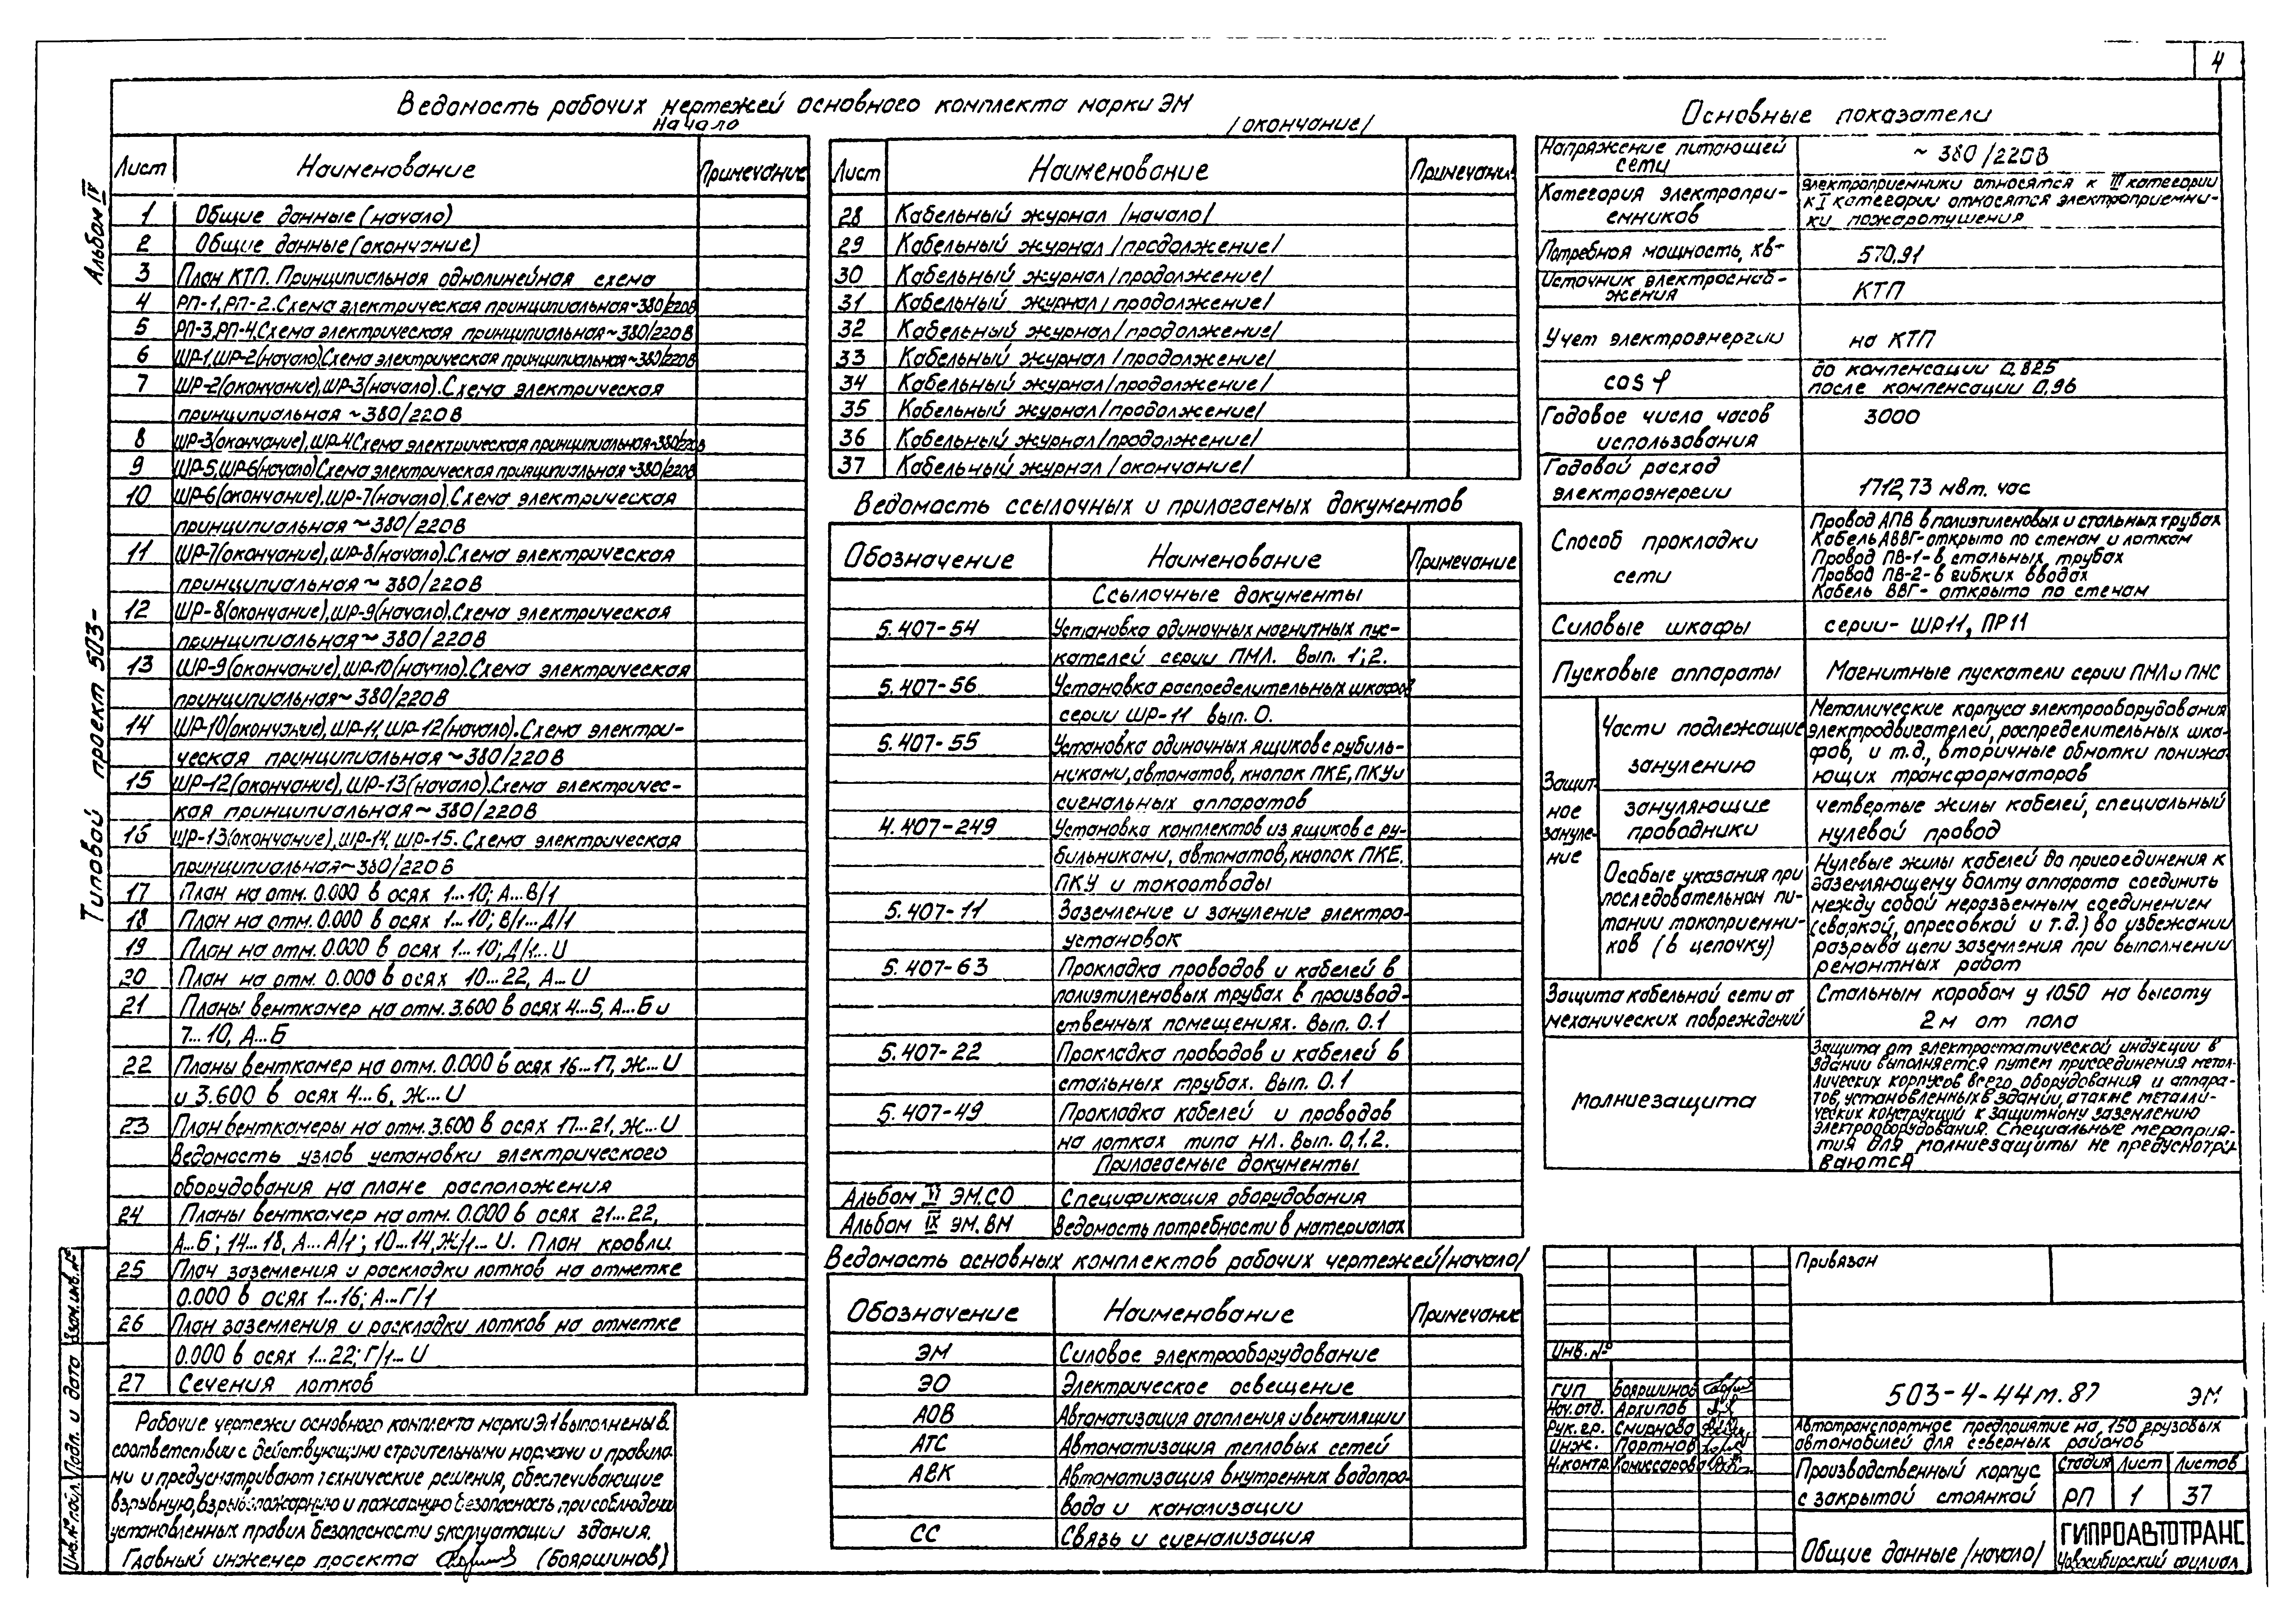 4
Альбом IV
Типовой проект 503-
Ведомость рабочих чертежей основного комплекта марки ЭМ
Начало
/окончание/
Лист Наименование Примечание
1 Общие данные (начало)
2 Общие данные (окончание)
3 План КТП. Принципиальная однолинейная схема
4 РП-1, РП-2. Схема электрическая принципиальная ~380/220В
5 РП-3, РП-4. Схема электрическая принципиальная ~380/220В
6 ШР-1, ШР-2 (начало). Схема электрическая принципиальная ~380/220В
7 ШР-2 (окончание), ШР-3 (начало). Схема электрическая
принципиальная ~380/220В
8 ШР-3 (окончание), ШР-4. Схема электрическая принципиальная ~380/220В
9 ШР-5, ШР-6 (начало). Схема электрическая принципиальная ~380/220В
10 ШР-6 (окончание), ШР-7 (начало). Схема электрическая
принципиальная ~380/220В
11 ШР-7 (окончание), ШР-8 (начало). Схема электрическая
принципиальная ~380/220В
12 ШР-8 (окончание), ШР-9 (начало). Схема электрическая
принципиальная ~380/220В
13 ШР-9 (окончание), ШР-10 (начало). Схема электрическая
принципиальная ~380/220В
14 ШР-10 (окончание), ШР-11, ШР-12 (начало). Схема электри-
ческая принципиальная ~380/220В
15 ШР-12 (окончание), ШР-13 (начало). Схема электричес-
кая принципиальная ~380/220В
16 ШР-13 (окончание), ШР-14, ШР-15. Схема электрическая
принципиальная ~380/220В
17 План на отм. 0.000 в осях 1...10; А...В/1
18 План на отм. 0.000 в осях 1...10; В/1...Д/1
19 План на отм. 0.000 в осях 1...10; Д/1...И
20 План на отм. 0.000 в осях 10...22, А...И
21 Планы венткамер на отм. 3.600 в осях 4...5, А...Б и
7...10, А...Б
22 Планы венткамер на отм. 0.000 в осях 16...17, Ж...И
и 3.600 в осях 4...6, Ж...И
23 План венткамеры на отм. 3.600 в осях 17...21, Ж...И
Ведомость узлов установки электрического
оборудования на плане расположения
24 Планы венткамер на отм. 0.000 в осях 21...22,
А...Б; 14...18, А...А/1; 10...14, Ж/1...И. План кровли
25 План заземления и раскладки лотков на отметке
0.000 в осях 1...16; А...Г/1
26 План заземления и раскладки лотков на отметке
0.000 в осях 1...22; Г/1...И
27 Сечения лотков
Рабочие чертежи основного комплекта марки ЭМ выполнены в
соответствии с действующими строительными нормами и правила-
ми и предусматривают технические решения, обеспечивающие
взрывную, взрывопожарную и пожарную безопасность при соблюдении
установленных правил безопасности эксплуатации здания.
Главный инженер проекта (Бояршинов)
Лист Наименование Примечание
28 Кабельный журнал /начало/
29 Кабельный журнал /продолжение/
30 Кабельный журнал /продолжение/
31 Кабельный журнал /продолжение/
32 Кабельный журнал /продолжение/
33 Кабельный журнал /продолжение/
34 Кабельный журнал /продолжение/
35 Кабельный журнал /продолжение/
36 Кабельный журнал /продолжение/
37 Кабельный журнал /окончание/
Ведомость ссылочных и прилагаемых документов
Обозначение Наименование Примечание
Ссылочные документы
5.407-54 Установка одиночных магнитных пус-
кателей серии ПМЛ. Вып. 1; 2.
5.407-56 Установка распределительных шкафов
серии ШР-11 вып. 0.
5.407-55 Установка одиночных ящиков с рубиль-
никами, автоматов, кнопок ПКЕ, ПКУ и
сигнальных аппаратов
4.407-249 Установка комплектов из ящиков с ру-
бильниками, автоматов, кнопок ПКЕ,
ПКУ и токоотводы
5.407-11 Заземление и зануление электро-
установок
5.407-63 Прокладка проводов и кабелей в
полиэтиленовых трубах в производ-
ственных помещениях. Вып. 0.1
5.407-22 Прокладка проводов и кабелей в
стальных трубах. Вып. 0.1
5.407-49 Прокладка кабелей и проводов
на лотках типа НЛ. Вып. 0,1.2.
Прилагаемые документы
Альбом VI ЭМ.СО Спецификация оборудования
Альбом IX ЭМ.ВМ Ведомость потребности в материалах
Ведомость основных комплектов рабочих чертежей /начало/
Обозначение Наименование Примечание
ЭМ Силовое электрооборудование
ЭО Электрическое освещение
АОВ Автоматизация отопления и вентиляции
АТС Автоматизация тепловых сетей
АВК Автоматизация внутренних водопро-
вода и канализации
СС Связь и сигнализация
Основные показатели
Напряжение питающей сети ~ 380/220В
Категория электропри-
емников
Электроприемники относятся к III категории
к I категории относятся электроприемни-
ки пожаротушения
Потребная мощность, кВт 570.91
Источник электроснаб-
жения КТП
Учет электроэнергии на КТП
cos φ
до компенсации 0,825
после компенсации 0,96
Годовое число часов
использования 3000
Годовой расход
электроэнергии 1712,73 мвт. час
Способ прокладки
сети
Провод АПВ в полиэтиленовых и стальных трубах
Кабель АВВГ - открыто по стенам и лоткам
Провод ПВ-1 - в стальных трубах
Провод ПВ-2 - в гибких вводах
Кабель ВВГ - открыто по стенам
Силовые шкафы серии - ШР11, ПР11
Пусковые аппараты Магнитные пускатели серии ПМЛ и ПНС
Защит-
ное
зануле-
ние
Части подлежащие
занулению
Металлические корпуса электрооборудования
электродвигателей, распределительных шка-
фов, и т.д., вторичные обмотки понижа-
ющих трансформаторов
зануляющие
проводники
четвертые жилы кабелей, специальный
нулевой провод
Особые указания при
последовательном пи-
тании токоприемни-
ков (в цепочку)
Нулевые жилы кабелей до присоединения к
заземляющему болту аппарата соединить
между собой неразъемным соединением
(сваркой, опресовкой и т.д.) во избежании
разрыва цепи заземления при выполнении
ремонтных работ
Защита кабельной сети от
механических повреждений
Стальным коробом у 1050 на высоту
2 м от пола
Молниезащита
Защита от электростатической индукции в
здании выполняется путем присоединения метал-
лических корпусов всего оборудования и аппара-
тов, установленных в здании, а также металли-
ческих конструкций к защитному заземлению
электрооборудования. Специальные мероприя-
тия для молниезащиты не предусматри-
ваются
Привязан
Инв. №
ГИП Бояршинов
Нач. отд. Архипов
Рук. гр. Смирнова
Инж. Портнов
Н. контр. Комиссарова
503-4-44м.87 ЭМ
Автотранспортное предприятие на 150 грузовых
автомобилей для северных районов
Производственный корпус
с закрытой стоянкой
Стадия Лист Листов
РП 1 37
Общие данные /начало/
ГИПРОАВТОТРАНС
Новосибирский филиал
Взам. инв. №
Подп. и дата
Инв. № подл.